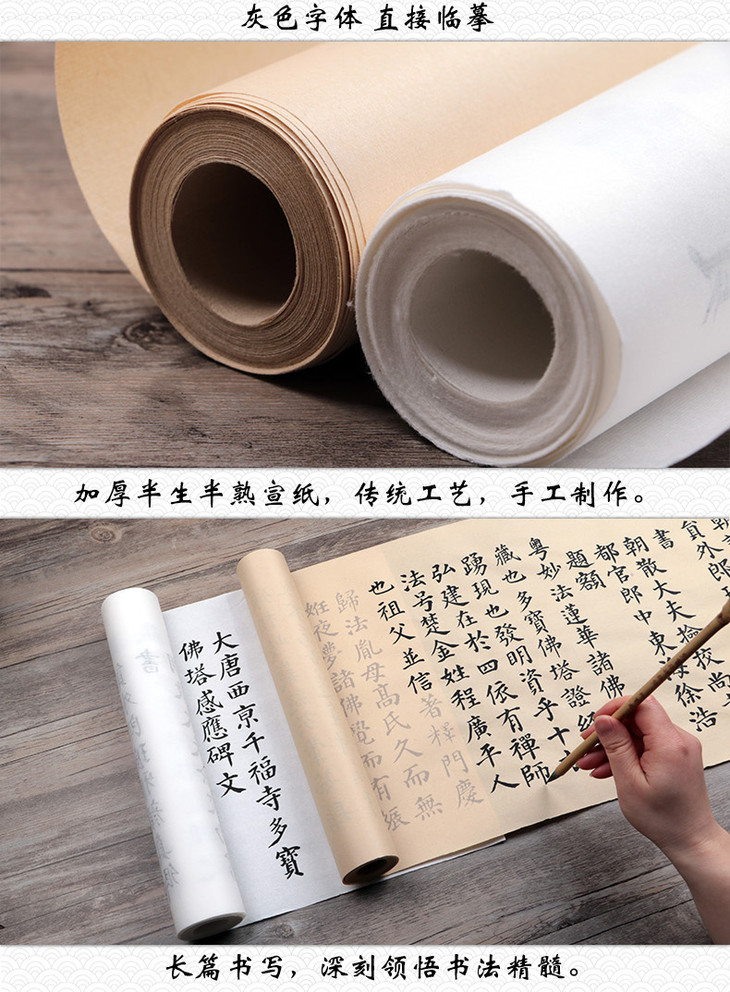 灰色字体 直接临摹
加厚半生半熟宣纸，传统工艺，手工制作。
貟外郎
書
朝散大夫撿挍尚
都官郎中東海徐浩
題額
粵妙法蓮華諸佛
藏也多寶佛塔證經
踴現也發明資乎十
弘建在於四依有禪師
法号楚金姓程廣平人
也祖父並信著釋門慶
歸法胤母髙氏久而無
姙夜夢諸佛覺而有娠
大唐西京千福寺多寶
佛塔感應碑文
長篇书写，深刻领悟书法精髓。